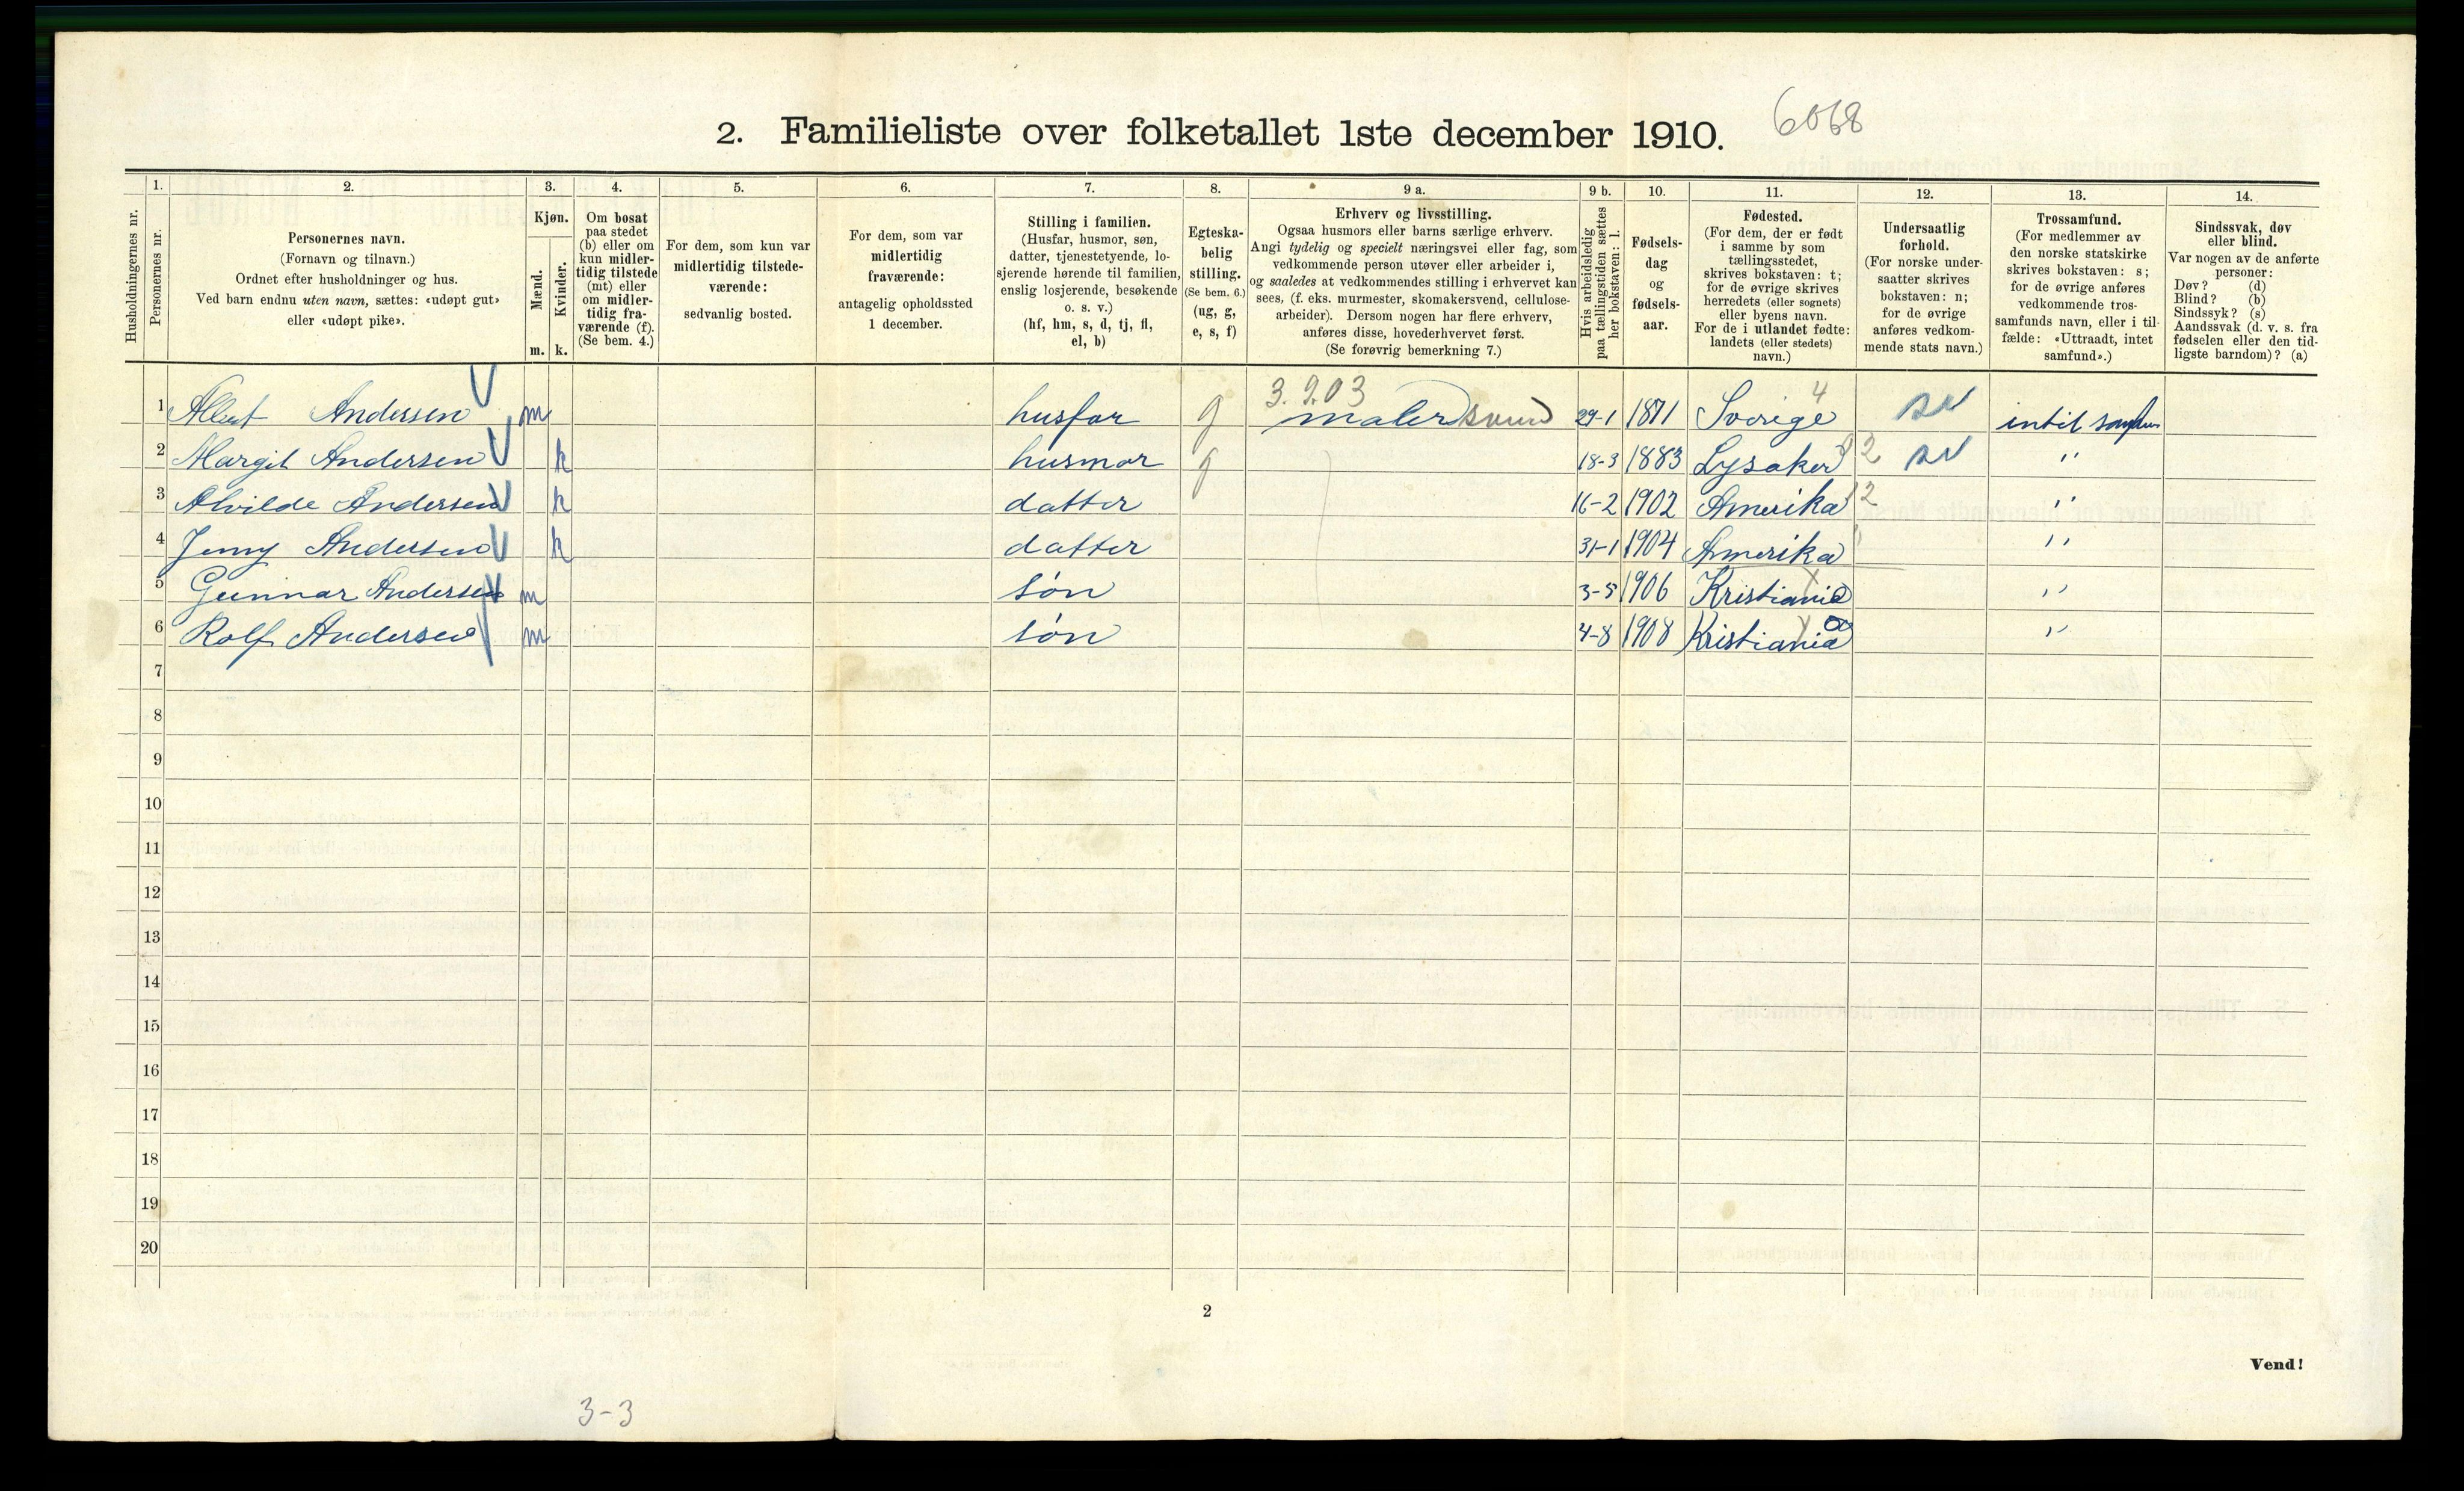 2. Familieliste over folketallet 1ste december 1910.
6068
Husholdningernes nr.
1.
Personernes nr.
2.
Personernes navn.
(Fornavn og tilnavn.)
Ordnet efter husholdninger og hus.
Ved barn endnu uten navn, sættes: «udøpt gut»
eller «udøpt pike».
3.
Kjøn.
Mænd.
Kvinder.
m. k.
4.
Om bosat
paa stedet
(b) eller om
kun midler-
tidig tilstede
(mt) eller
om midler-
tidig fra-
værende (f).
(Se bem. 4.)
5.
For dem, som kun var
midlertidig tilstede-
værende:
sedvanlig bosted.
6.
For dem, som var
midlertidig
fraværende:
antagelig opholdssted
1 december.
7.
Stilling i familien.
(Husfar, husmor, søn,
datter, tjenestetyende, lo-
sjerende hørende til familien,
enslig losjerende, besøkende
o. s. v.)
(hf, hm, s, d, tj, fl,
el, b)
8.
Egteska-
belig
stilling.
(Se bem. 6.)
(ug, g,
e, s, f)
9 a.
Erhverv og livsstilling.
Ogsaa husmors eller barns særlige erhverv.
Angi tydelig og specielt næringsvei eller fag, som
vedkommende person utøver eller arbeider i,
og saaledes at vedkommendes stilling i erhvervet kan
sees, (f. eks. murmester, skomakersvend, cellulose-
arbeider). Dersom nogen har flere erhverv,
anføres disse, hovederhvervet først.
(Se forøvrig bemerkning 7.)
9 b.
Hvis arbeidsledig
paa tællingstiden sættes
her bokstaven: l.
10.
Fødsels-
dag
og
fødsels-
aar.
11.
Fødested.
(For dem, der er født
i samme by som
tællingsstedet,
skrives bokstaven: t;
for de øvrige skrives
herredets (eller sognets)
eller byens navn.
For de i utlandet fødte:
landets (eller stedets)
navn.)
12.
Undersatlig
forhold.
(For norske under-
saatter skrives
bokstaven: n;
for de øvrige
anføres vedkom-
mende stats navn.)
13.
Trossamfund.
(For medlemmer av
den norske statskirke
skrives bokstaven: s;
for de øvrige anføres
vedkommende tros-
samfunds navn, eller i til-
fælde: «Uttraadt, intet
samfund».)
14.
Sindssvak, døv
eller blind.
Var nogen av de anførte
personer:
Døv? (d)
Blind? (b)
Sindssyk? (s)
Aandssvak (d. v. s. fra
fødselen eller den tid-
ligste barndom)? (a)
3.9.03 4
1 Albert Andersen m husfar g maler svend 29-1 1871 Sverige sv intil
2 Margit Andersen k husmor g 18-3 1883 Lysaker 2 sv "
3 Alvilde Andersen k datter 16-2 1902 Amerika 12 "
4 Jenny Andersen k datter 31-1 1904 Amerika "
5 Gunnar Andersen m søn 3-5 1906 Kristiania "
6 Rolf Andersen m søn 4-8 1908 Kristiania "
7
8
9
10
11
12
13
14
15
16
17
18
19
20
2
Vend!
3-3